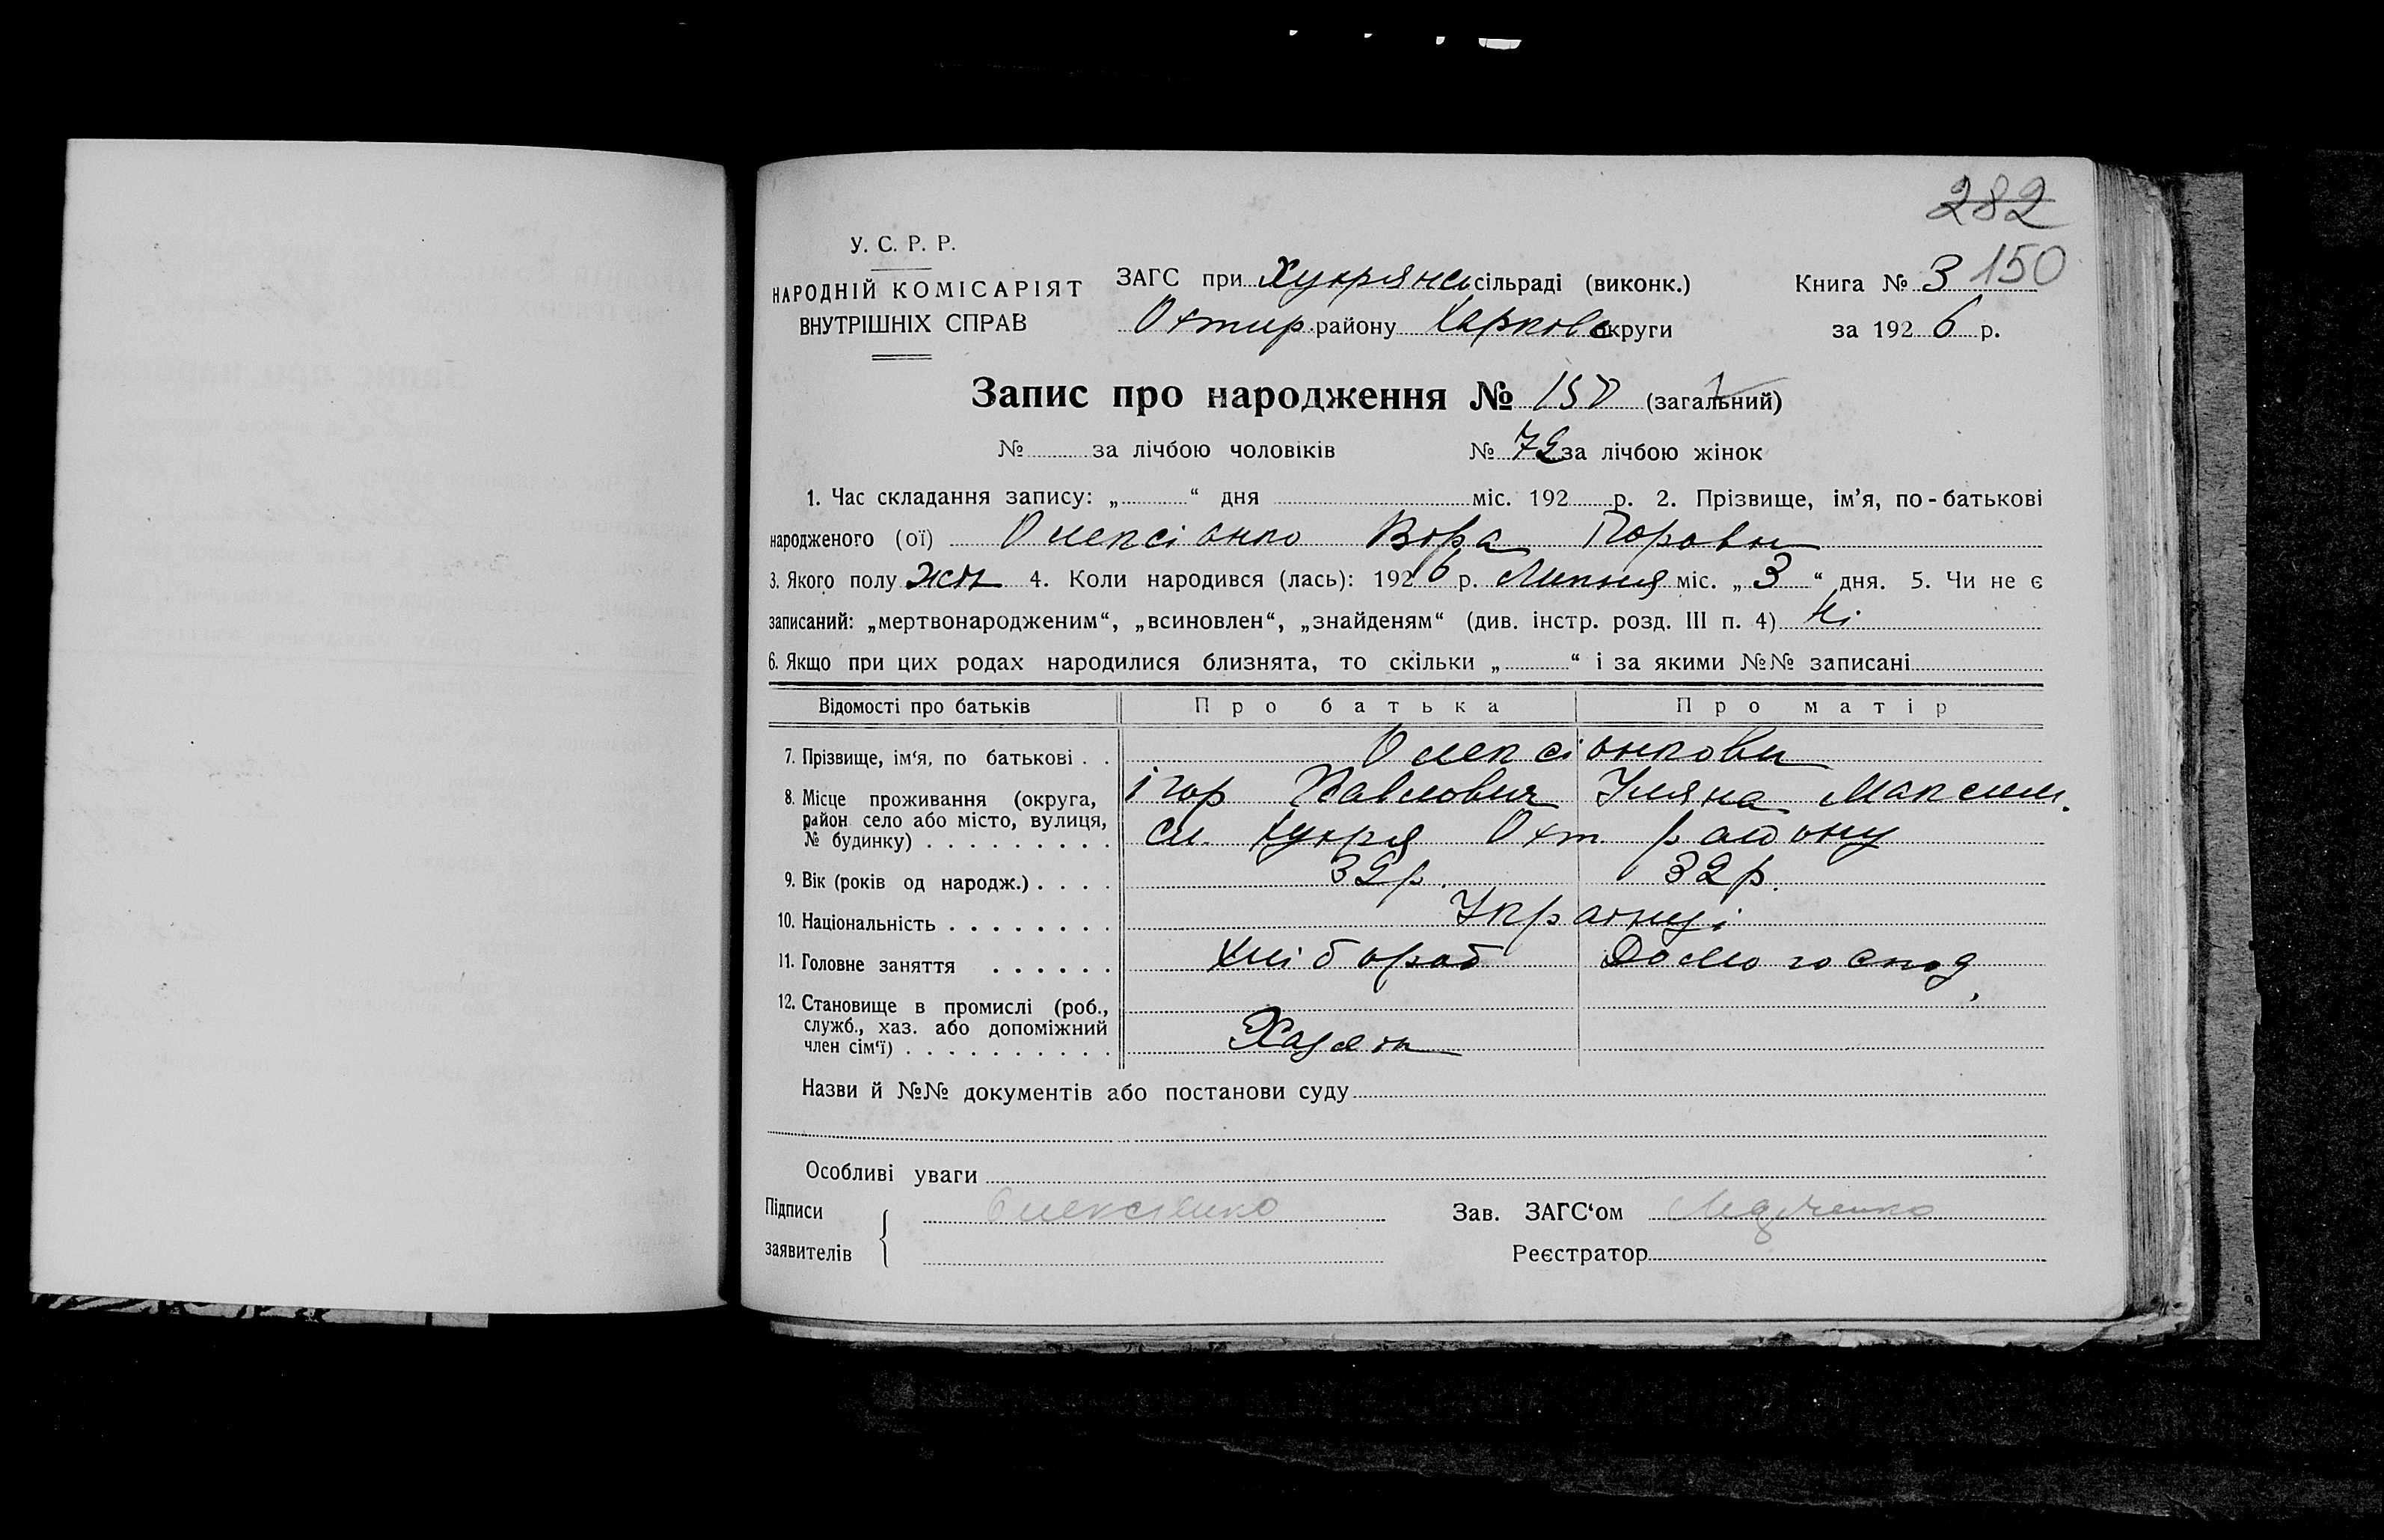 282
У. С. Р. Р.
НАРОДНІЙ КОМІСАРІЯТ
ВНУТРІШНІХ СПРАВ
ЗАГС при Хухрянсь сільраді (виконк.)
Охтир. району Харковс округи
Книга № 3 150
за 1926 р.
Запис про народження № 150 (загальний)
№ за лічбою чоловіків № 72 за лічбою жінок
1. Час складання запису: „ “ дня міс. 192 р. 2. Прізвище, ім’я, по-батькові
народженого (ої) Олексієнко Вера
3. Якого полу жін 4. Коли народився (лась): 1926 р. Липня міс. „3“ дня. 5. Чи не є
записаний: „мертвонародженим“, „всиновлен“, „знайденям“ (див. інстр. розд. III п. 4) Ні
6. Якщо при цих родах народилися близнята, то скільки „ “ і за якими №№ записані
Відомості про батьків Про батька Про матір
7. Прізвище, ім‘я, по батькові . . Олексієнкови
ігор Павлович Уляна Максим.
8. Місце проживання (округа,
район село або місто, вулиця,
№ будинку) . . . . . . . . . сл. Хухря Охт. району
9. Вік (років од народж.) . . . . 32 р. 32 р.
10. Національність . . . . . . . . Українці
11. Головне заняття . . . . . . Хлібороб Домогоспод,
12. Становище в промислі (роб.,
служб., хаз. або допоміжний
член сім‘ї) . . . . . . . . . . Хазяїн
Назви й №№ документів або постанови суду
Особливі уваги
Підписи
заявителів
Олексієнко
Зав. ЗАГС‘ом
Реєстратор